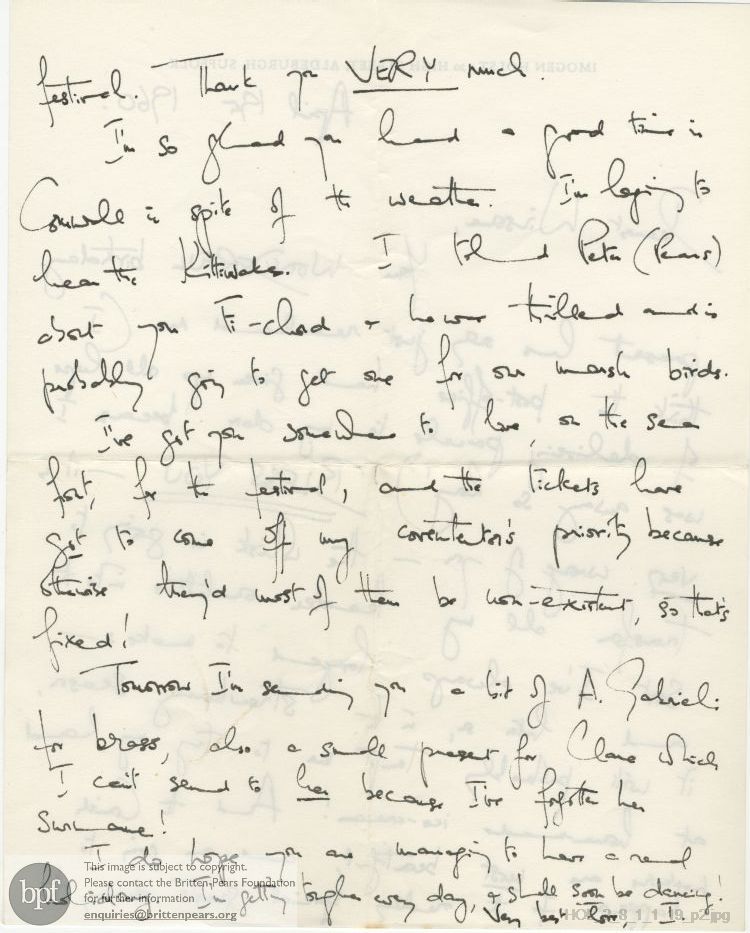 festival. Thank you VERY much.
I'm so glad you had a good time in
Cornwall in spite of the weather. I'm longing to
hear the Kittiwakes. I told Peter (Pears)
about your Fi-chord & he was thrilled and is
probably going to get one for our marsh birds.
I've got you somewhere to live, on the sea
front, for the festival, and the tickets have
got to come off my co-
priority because
otherwise they'd most of them be non-existent, so that's
fixed!
Tomorrow I'm sending you a bit of A. Gabrieli
for brass, also a small present for Clare which
I can't send to her because I've forgotten her
surname!
I do hope you are managing to have a real
I'm getting tougher every day, & shall soon be dancing!
Very best love, I.
IMOGEN HOLST
HIGH
ALDEBURGH, SUFFOLK
April 19th 1960
bpf
This image is subject to copyright.
Please contact the Britten-Pears Foundation
for further information
enquiries@brittenpears.org
HOL_2_8_1_1_19_p2.jpg